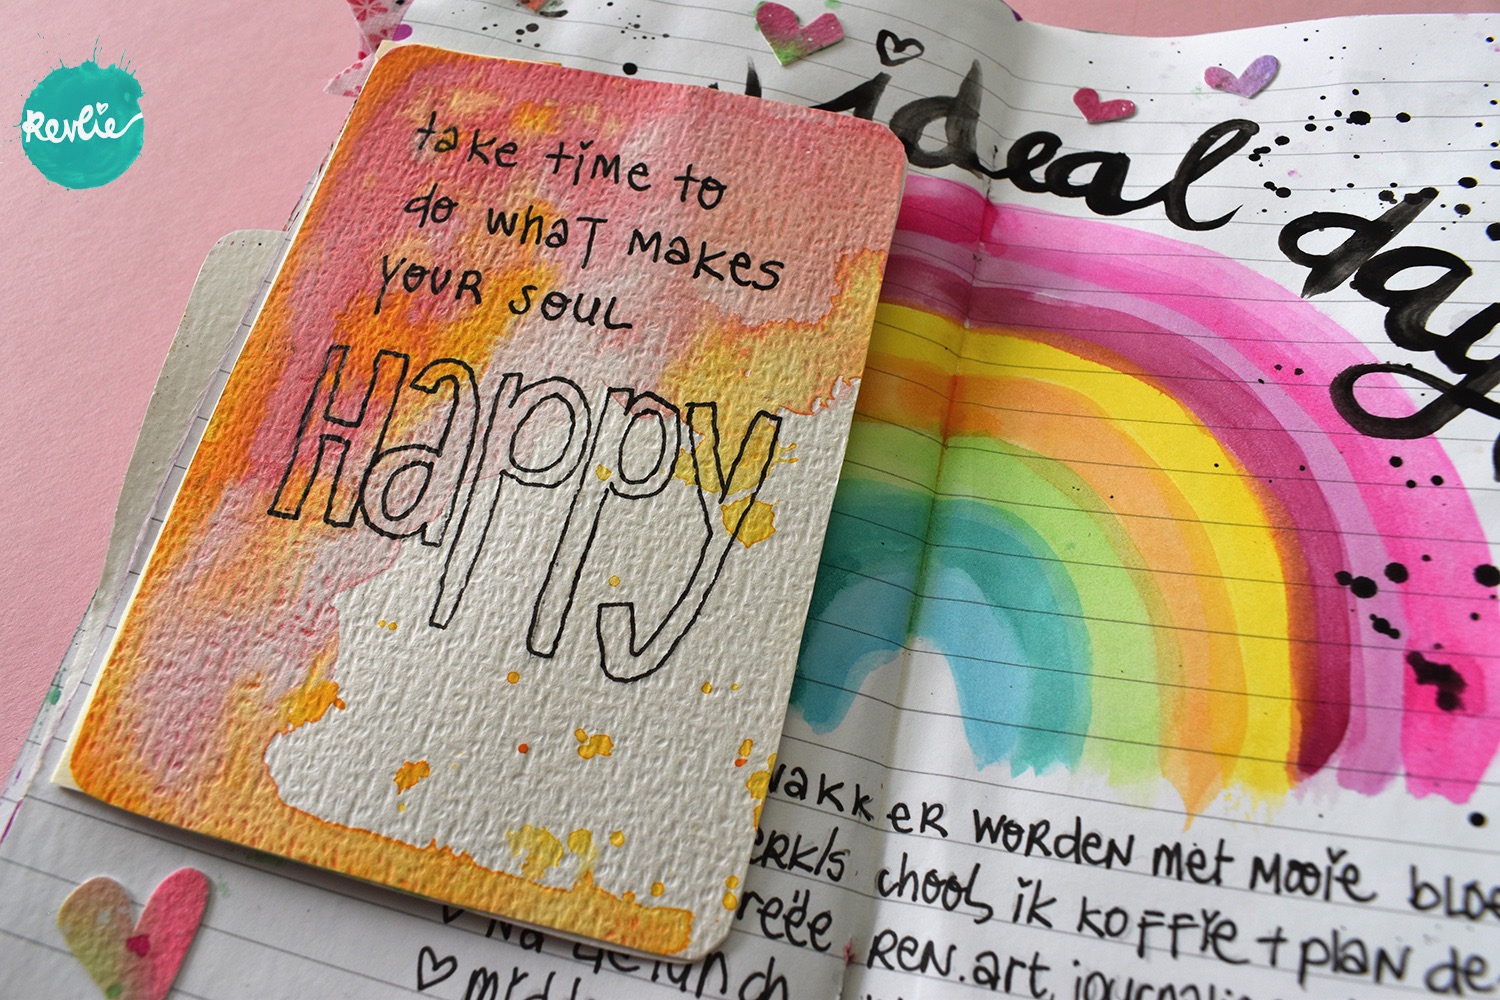 Revlie
take time to
do what makes
your soul
Happy
ideal day
wakker worden met mooie
chools ik koffie + plan de
ren. art journaling
na de lunch